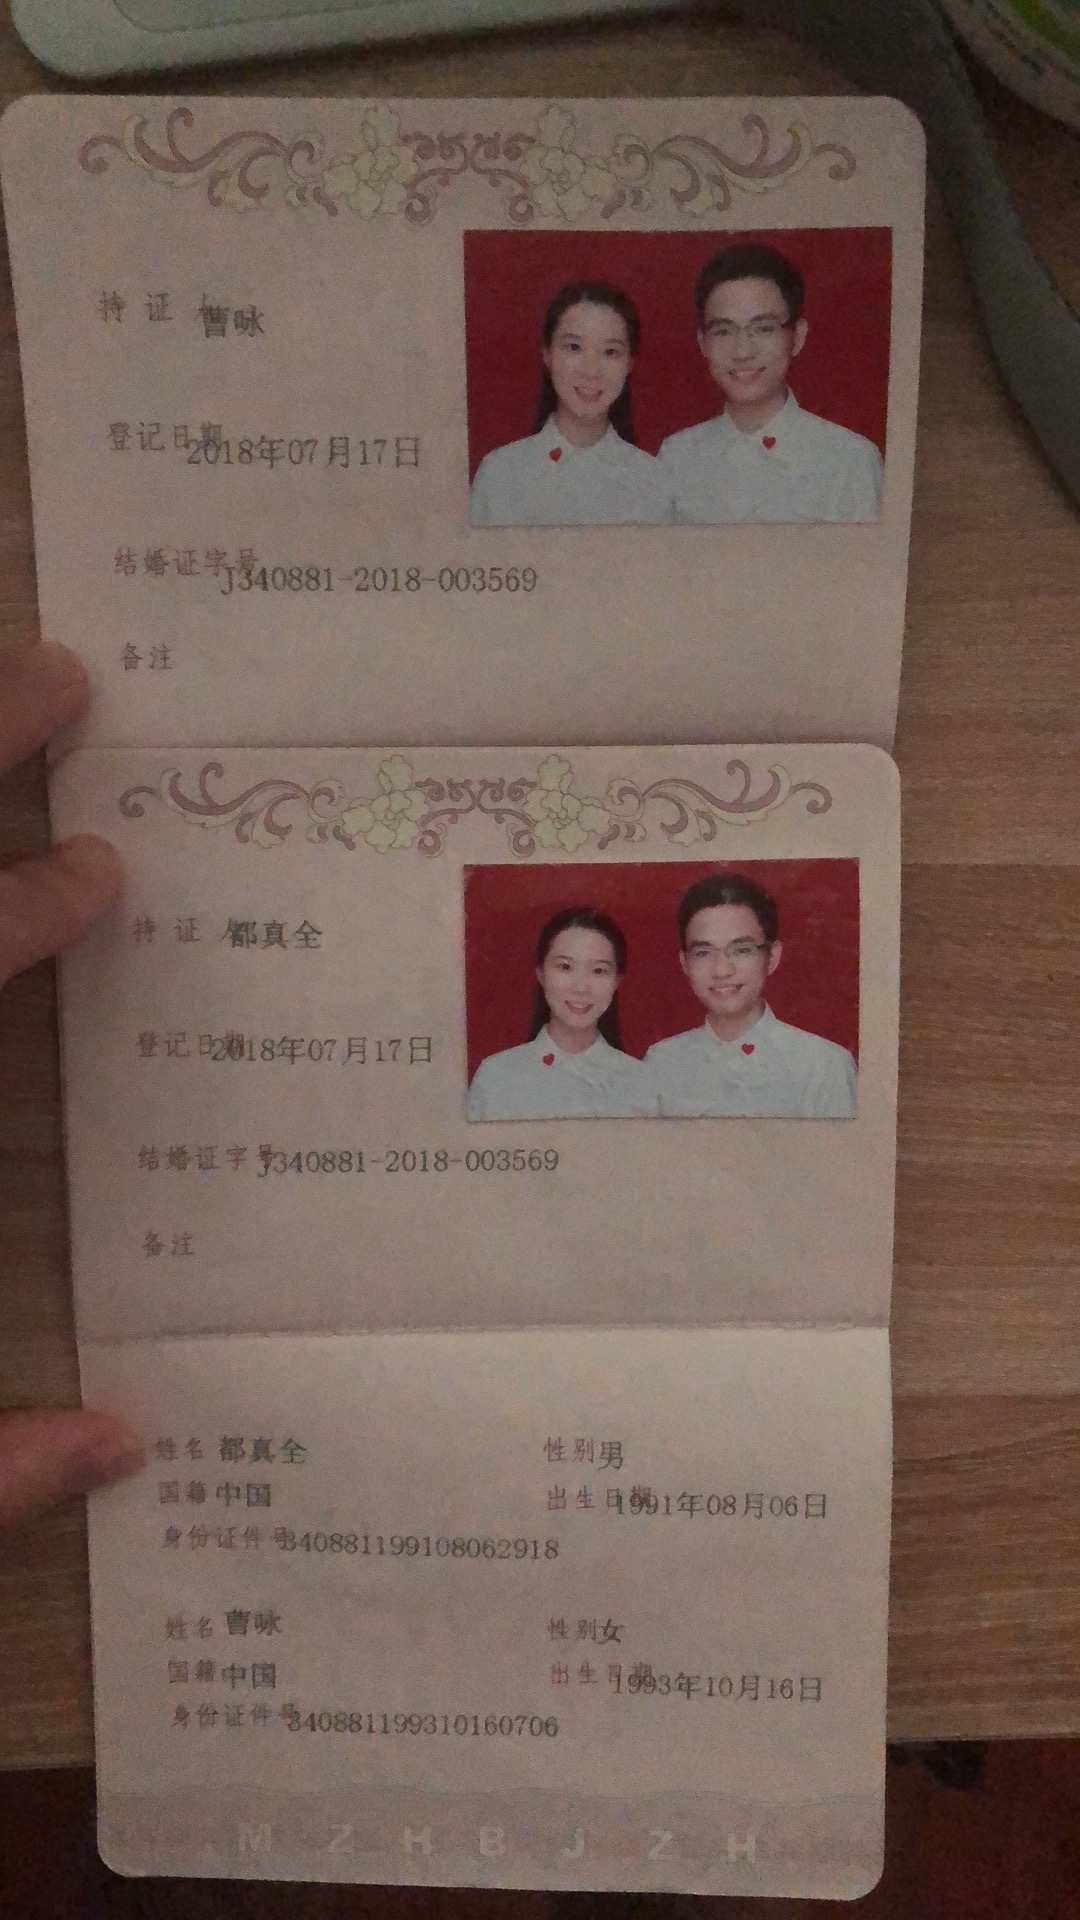 持证人 曹咏
登记日期 2018年07月17日
结婚证字号 J340881-2018-003569
备注
持证人 都真全
登记日期 2018年07月17日
结婚证字号 J340881-2018-003569
备注
姓名 都真全 性别 男
国籍 中国 出生日期 1991年08月06日
身份证件号 340881199108062918
姓名 曹咏 性别 女
国籍 中国 出生日期 1993年10月16日
身份证件号 340881199310160706
M Z H B J Z H